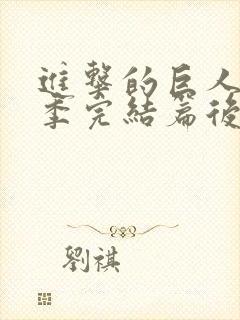 進擊的巨人
季完結篇後
劉祺